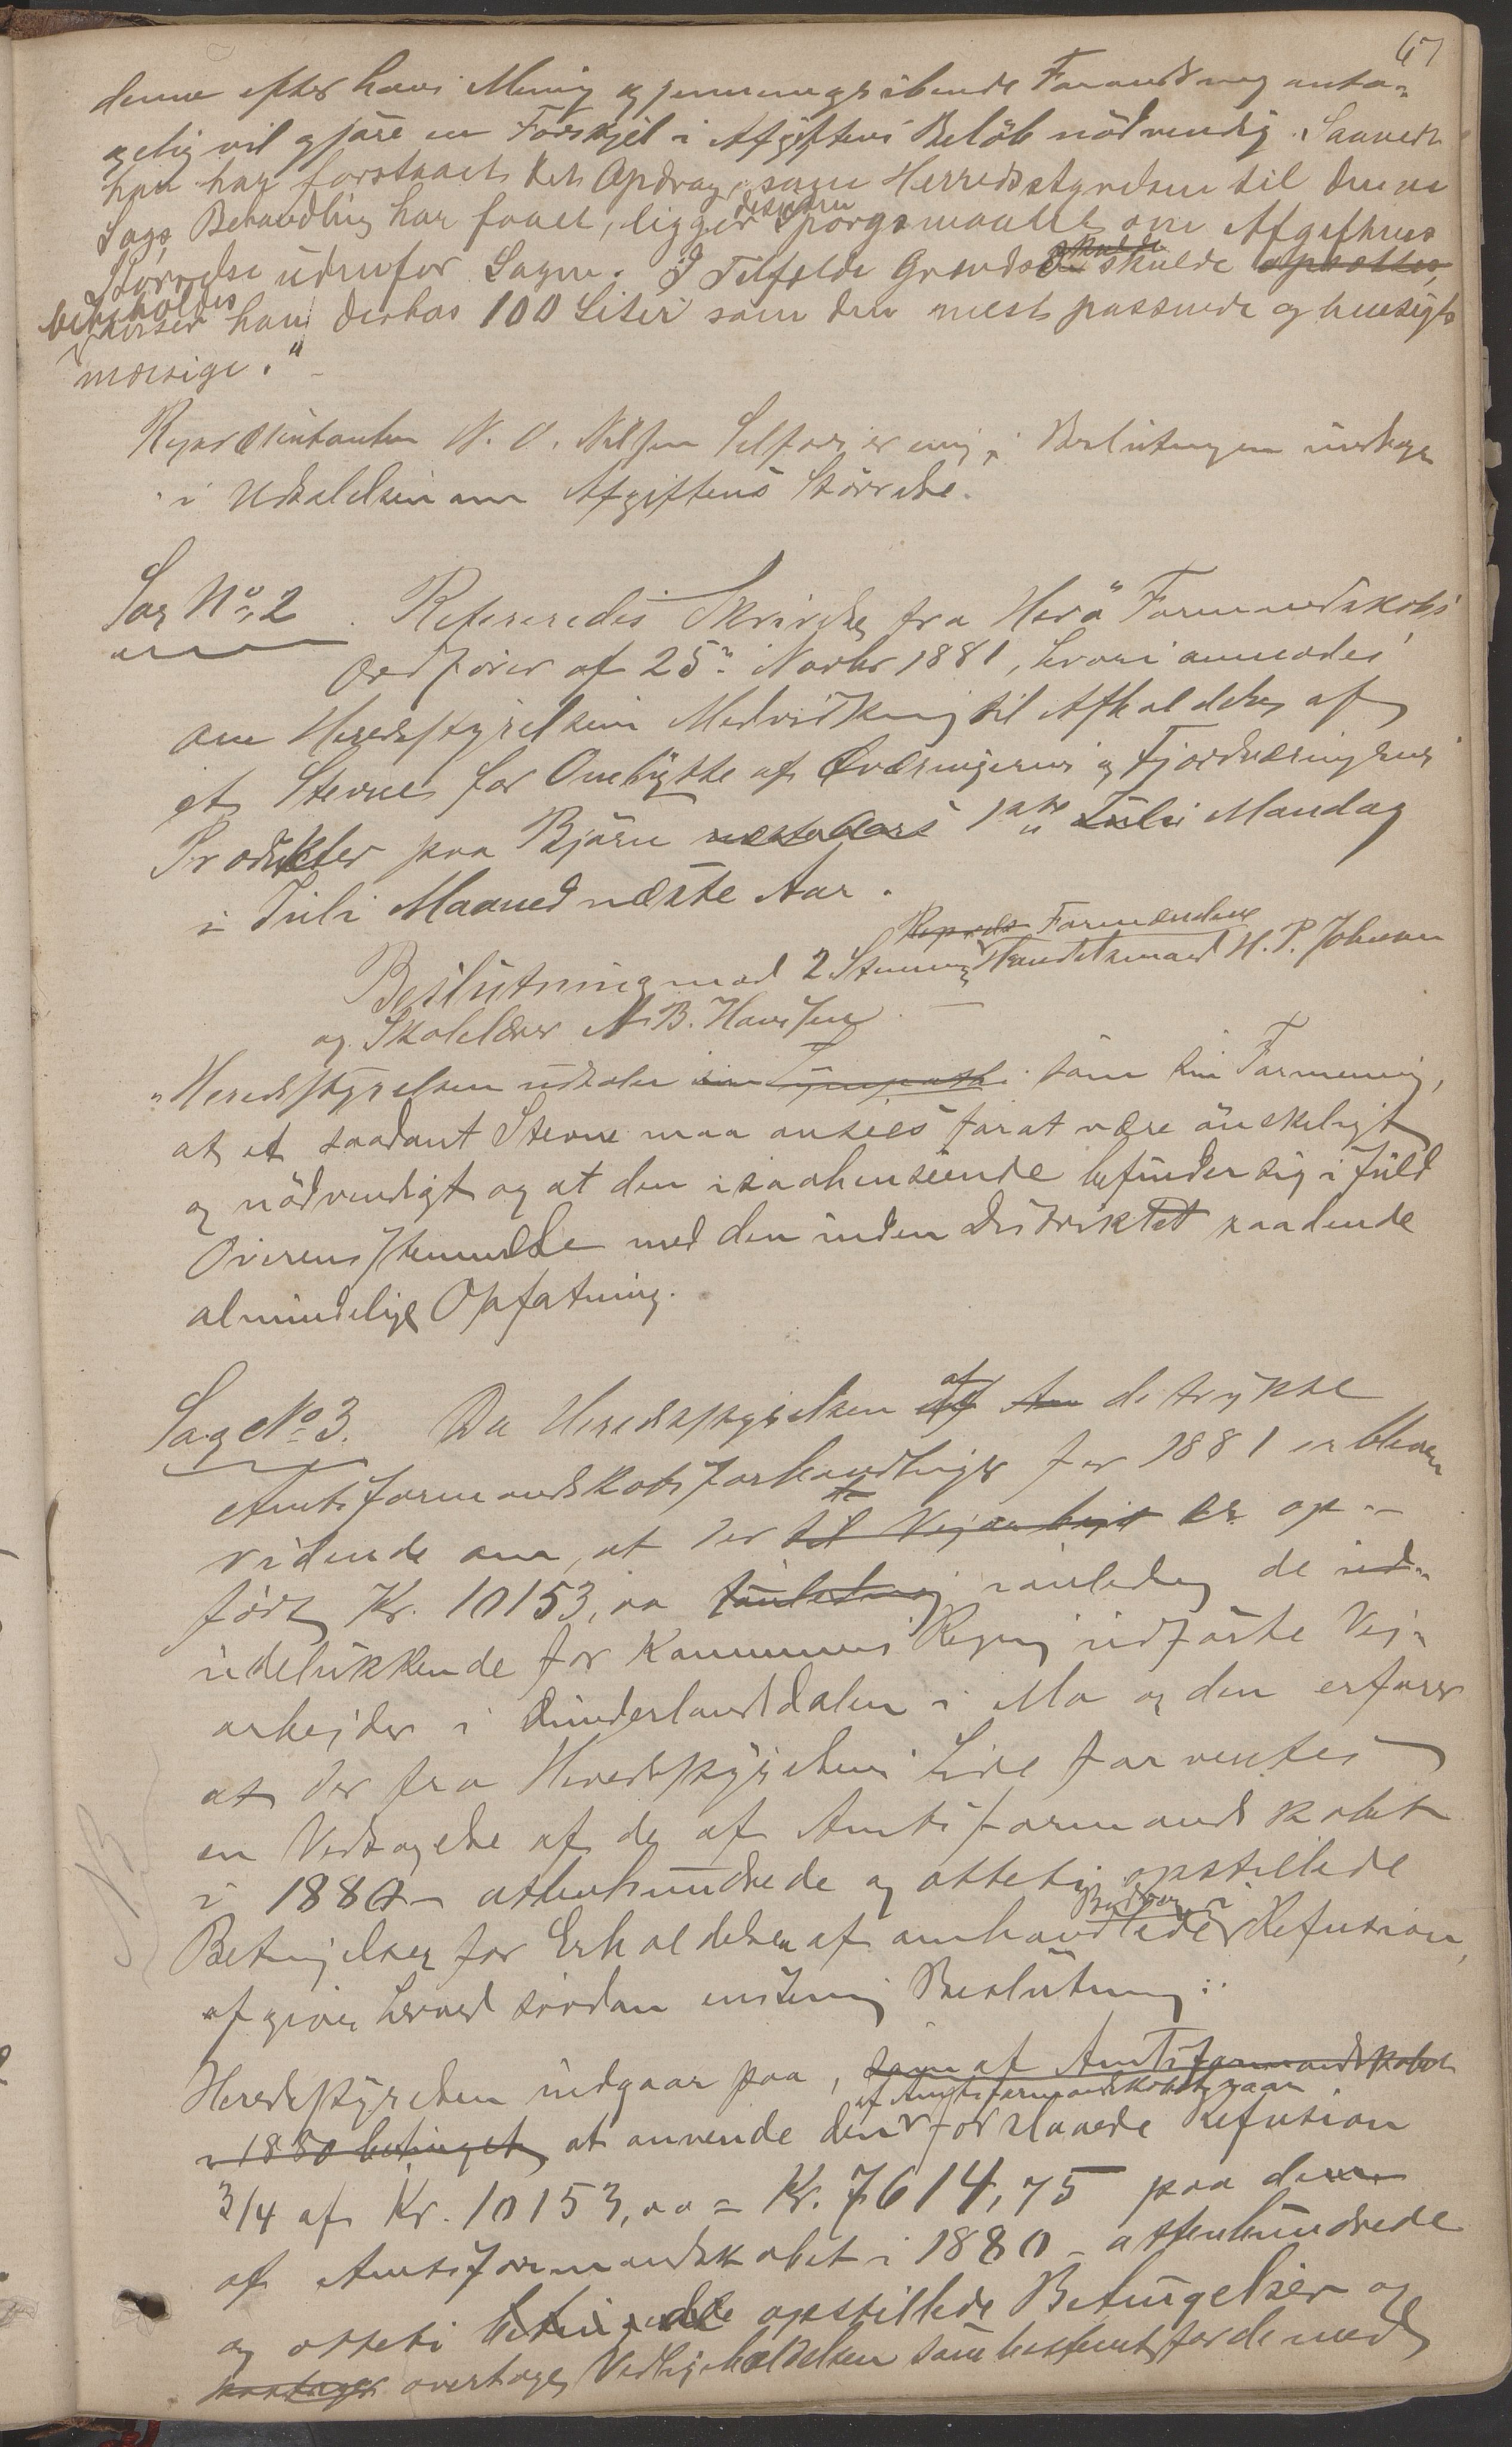 67
denne efter hans Mening gjennemgribende Forandring anta-
gelig vil gjøre en Forskjel i Afgiftens Beløb nødvendig. Saavidt
han har forstaaet det Opdrag, som Herredsstyrelsen til denne
Sags Behandling har faaet, ligger desuden Spørgsmaalet om Afgiftens
Størrelse udenfor Sagen. I Tilfælde Grændsen skulde skulde opsættes,
bibeholdes
anser han derhos 100 Liter som den mest passende og hensigts
mæssige."
Repræsentanten N. O. Nilsen Selfors er enig i Beslutningen undtagen
i Udtalelsen om Afgiftens Størrelse.
Sag No. 2. Refereredes Skrivelse fra Herø Formandskabs
Ordfører af 25de Novbr 1881, hvori anmodes
om Heredsstyrelsens Medvirkning til Afholdelse af
et Stevne for Ombytte af Øværingernes og Fjordværingernes
Produkter paa Bjørn næste Aars 1ste Juli Mandag
i Juli Maaned næste Aar.
Repræs Formændene
Beslutning mod 2 Stemmer Handelsmand H. P. Johnsen
og Skolelærer N. B. Hansen.
"Heredsstyrelsen udtaler sin Sympathi som sin Formening,
at et saadant Stevne maa ansees for at være ønskeligt
og nødvendigt og at den i saahenseende befinder sig i fuld
Overensstemmelse med den inden Distriktet raadende
almindelige Opfatning.
Sag No 3. Da Heredsstyrelsen af de trykte
Amtsformandskabsforhandlinger for 1881 er bleven
vidende om, at der til Vejarbejde er op-
ført Kr. 10153,00 i anledning de ud-
udelukkende for Kommunens Regning udførte Vej-
arbejder i Dunderlandsdalen i Mo og den erfarer
at der fra Heredsstyrelsens Side forventes
en Vedtagelse af de af Amtsformandskabet
NB
i 1880 - attenhundrede og otteti opstillede
Betingelser for Erholdelsen af omhandlede Refusion,
afgives herved saadan enstemmig Beslutning:
Heredsstyrelsen indgaar paa, som af Amtsformandskabet
af Amtsformandskabet i aar
i 1880 betinget at anvende den foreslaaede Refusion
3/4 af Kr. 10153,00 = Kr. 7614,75 paa de
af Amtsformandskabet i 1880 - attenhundrede
og otteti betingede opstillede Betingelser og
overtage Vedligeholdelsen som bestemt for de med